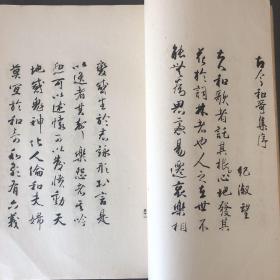 古今和哥集序
紀淑望
夫和歌者託其根於心地發其
花於詞林者也人之在世不
能無為思慮易遷哀樂相
變感生於志詠形於言是
以逸者其聲樂怨者其吟
悲可以述懐可以發憤動天
地感鬼神化人倫和夫婦
莫宜於和哥和歌有六義